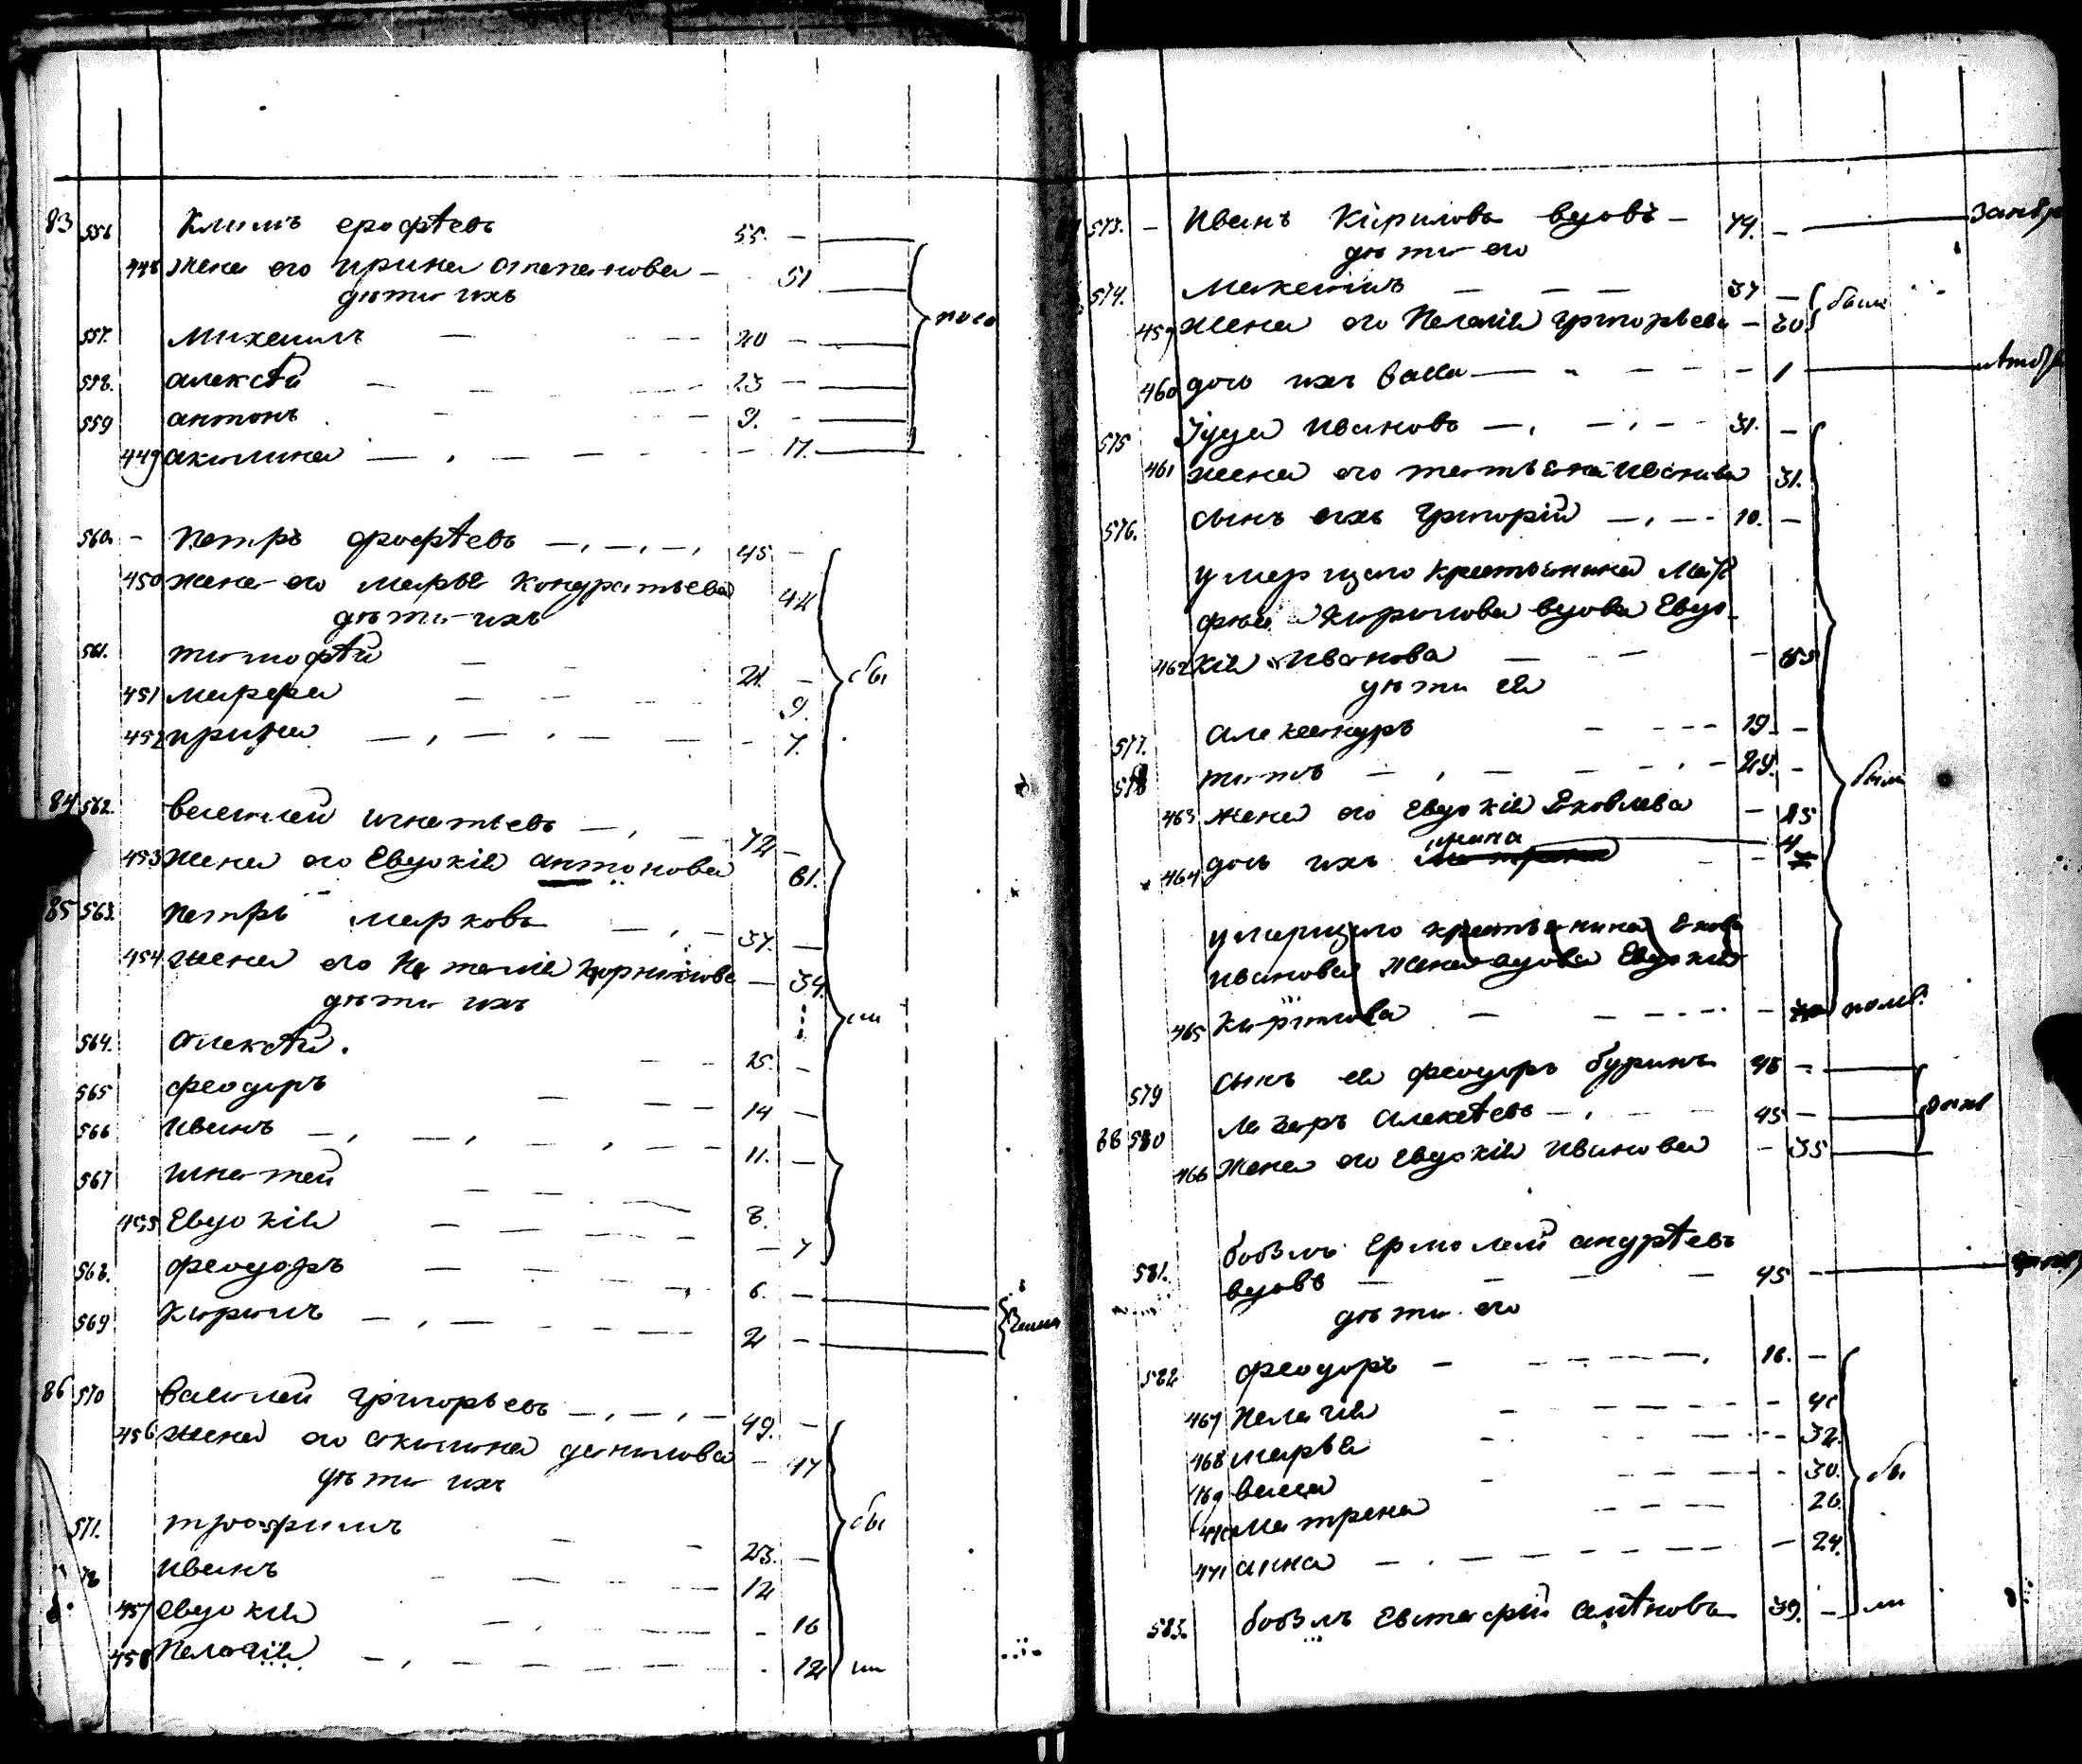 83 556 Климъ ерофѣевъ 55. —
448 Жена его ирина Степанова — 51
дѣти ихъ
557. Михаилъ — 20 —
558. алексѣй — 23 —
559 антонъ — 9. —
449 акилина — 17.
560. — Петръ фрофѣевъ — 45 —
450 жена его марья Кондратьева 42
дѣти ихъ
561. тимофѣй — 21. —
451 марфа — 9.
452 ирина — 7.
84 562. василей игнатьевъ — 72 —
453 Жена его Евдокія антонова 61.
85 563. Петръ марковъ — 37. —
454 жена его Наталія — 34.
дѣти ихъ
564. алексѣй. — 15. —
565 феодоръ — 14 —
566 иванъ — 11. —
567 игнатей — 8.
455 Евдокія — 7
568. феодоръ — 6. —
569 Кирилъ — 2 —
86 570 василей григорьевъ — 49. —
456 жена его акилина данилова — 47
дѣти ихъ
571. трофимъ — 23. —
иванъ — 12
457 евдокія — 16
458 Пелагія — 12
были
573. — Иванъ Кириловъ вдовъ — 74. —
дѣти его
574. Максимъ — 37 —
459 жена его Пелагія григорьева — 30 были
460 дочь ихъ васса — 1
575 Іуда Ивановъ — 31. —
461 жена его татьяна Иванова 31.
576. сынъ ихъ григорій — 10. —
умершаго крестьянина
Кирилова вдова Евдо-
462 кія Иванова — 55
дѣти ея
577. александръ — 19. —
578 титъ — 24. —
463 жена его Евдокія Яковлева — 25
464 дочь ихъ ирина — 4
были
умершаго крестьянина Якова
Иванова жена вдова Евдокія
465 Кирилова —
579 сынъ ея феодоръ буринъ 48 —
88 580 Лазарь алексѣевъ — 45 —
466 Жена его евдокія Иванова — 35
581. бобыль ермолай андрѣевъ
вдовъ — 45 —
дѣти его
582 феодоръ — 16. —
467 Пелагія — 40
468 марья — 32.
469 васса — 30.
470 матрена — 26.
471 анна — 24.
583. бобыль Евстафій 39. —